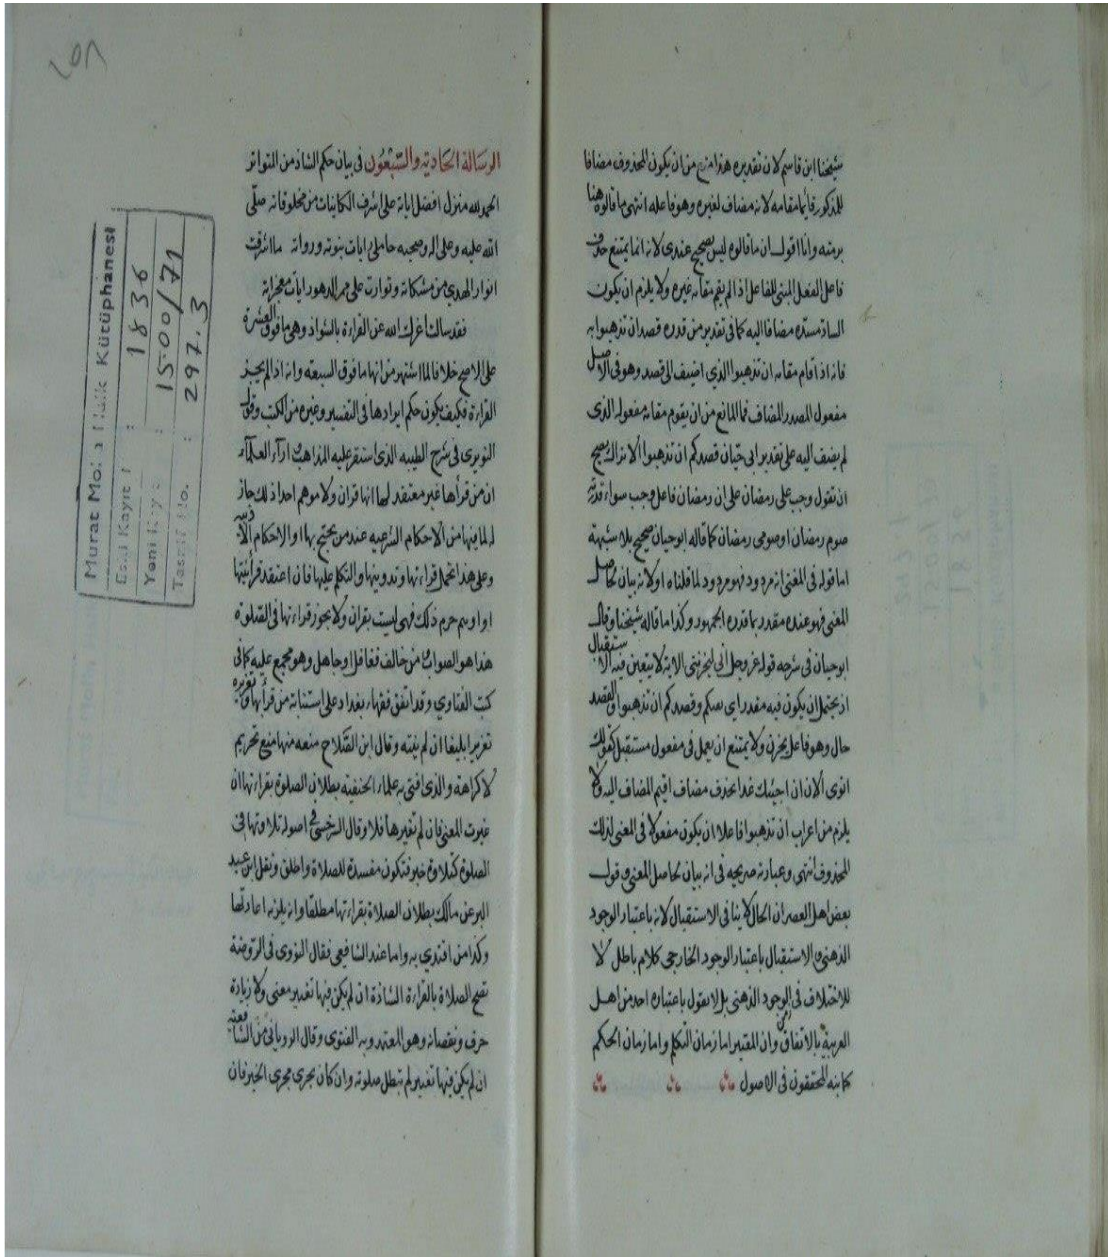 شيخنا ابن قاسم لان تقديره هذا منع من ان يكون المحذوف مضافا
للمذكور قائما مقامه لانه مضاف لغيره وهو فاعله انتهى ما قالوه هنا
برمته وانا اقول ان ما قالوه ليس بصحيح عندى لانه انما يمتنع حذف
فاعل الفعل المبنى للفاعل اذا لم يقم مقامه غيره ولا يلزم ان يكون
الساد مسده مضافا اليه كما فى تقدير من قدره قصد ان تذهبوا به
فانه اذا قام مقامه ان تذهبوا الذي اضيف الى قصد وهو فى الاصل
مفعول المصدر المضاف فما المانع من ان يقوم مقامه مفعوله الذى
لم يضف اليه على تقدير ابى حيان قصدكم ان تذهبوا ألا تراك يصح
ان تقول وجب على رمضان على ان رمضان فاعل وجب سواء قدرته
صوم رمضان او صومى رمضان كما قاله ابو حيان صحيح بلا شبهة
اما قوله فى المغنى انه مردود فهو مردود لما قلناه او لانه بيان لحاصل
المعنى فهو عنده مقدر بما قدره الجمهور وكذا ما قاله شيخنا وقال
ابو حيان فى شرحه قوله عز وجل انى ليحزننى الاية لا يتعين فيه الاستقبال
اذ يحتمل ان يكون فيه مقدر اى قصدكم ان تذهبوا فالقصد
حال وهو فاعل يحزن ولا يمتنع ان يعمل فى مفعول مستقبل كقولك
انوى الان ان اجيئك غدا بحذف مضاف اقيم المضاف اليه ولا
يلزم من اعراب ان تذهبوا فاعلا ان يكون مفعولا فى المعنى لذلك
المحذوف انتهى وعبارته صريحه فى انه بيان لحاصل المعنى وقول
بعض اهل العصر ان الحال لا ينافى الاستقبال لانه باعتبار الوجود
الذهنى والاستقبال باعتبار الوجود الخارجى كلام باطل لا
للاختلاف فى الوجود الذهنى بل لانه يقول باعتباره احد من اهل
العربية بالاتفاق وان المعتبر اما زمان التكلم واما زمان الحكم
كما بينه المحققون فى الاصول
٢٥٨
الرسالة الحادية والسبعون فى بيان حكم الشاذ من التواتر
الحمد لله منزل افضل اياته على اشرف الكائنات من مخلوقاته صلى
الله عليه وعلى اله وصحبه حاملى ايات نبوته ورواته ما اشرقت
انوار الهدي من مشكاته وتوارت على ممر الدهور ايات معجزاته
فقد سالت اعزك الله عن القراءة بالشواذ وهى ما فوق العشرة
على الاصح خلافا لما اشتهر من انها ما فوق السبعه وانه اذا لم يجز
القراءة فكيف يكون حكم ايرادها فى التفسير وغيره من الكتب وقول
النويرى فى شرح الطيبه الذى استقر عليه المذاهب وآراء العلمآء
ان من قرأها غير معتقد لها انها قران ولا موهم احدا ذلك جاز
له لما فيها من الاحكام الشرعيه عند من يحتج بها او الاحكام الادبيه
وعلى هذا تحمل قراءتها وتدوينها والتكلم عليها فان اعتقد قرأنيتها
او اوهم حرم ذلك فهى ليست بقران ولا يجوز قراءتها فى الصلوة
هذا هو الصواب من خالف فغافل او جاهل وهو مجمع عليه كما فى
كتب الفتاوي وقد اتفق فقهاء بغداد على استتابة من قرأ بها وتعزيره
تعزيرا بليغا ان لم يتب وقال ابن الصّلاح منعه منها منع تحريم
لا كراهة والذى افتى به علماء الحنفيه بطلان الصلوة بقراءتها ان
غيرت المعنى فان لم تغيرها فلا وقال السرخسى فى اصوله تلاوتها فى
الصلوة كتلاوة خبر فتكون مفسدة للصلاة واطلق ونقل ابن عبد
البر عن مالك بطلان الصلاة بقراءتها مطلقا وانه يلزمه اعادتها
وكذا من اقتدي به واما عند الشافعى فقال النووى فى الروضة
تصح الصلاة بالقراءة الشاذة ان لم يكن فيها تغيير معنى ولا زيادة
حرف ونقصانه وهو المعتمد وبه الفتوى وقال الرويانى من الشافعيه
ان لم يكن فيها تغيير لم تبطل صلوته وان كان يجرى مجرى الخبر فان
Murat Molla Halk Kütüphanesi
Eski Kayıt : 1836
Yeni Kayıt : 1500/71
Tasnif No. : 297.3